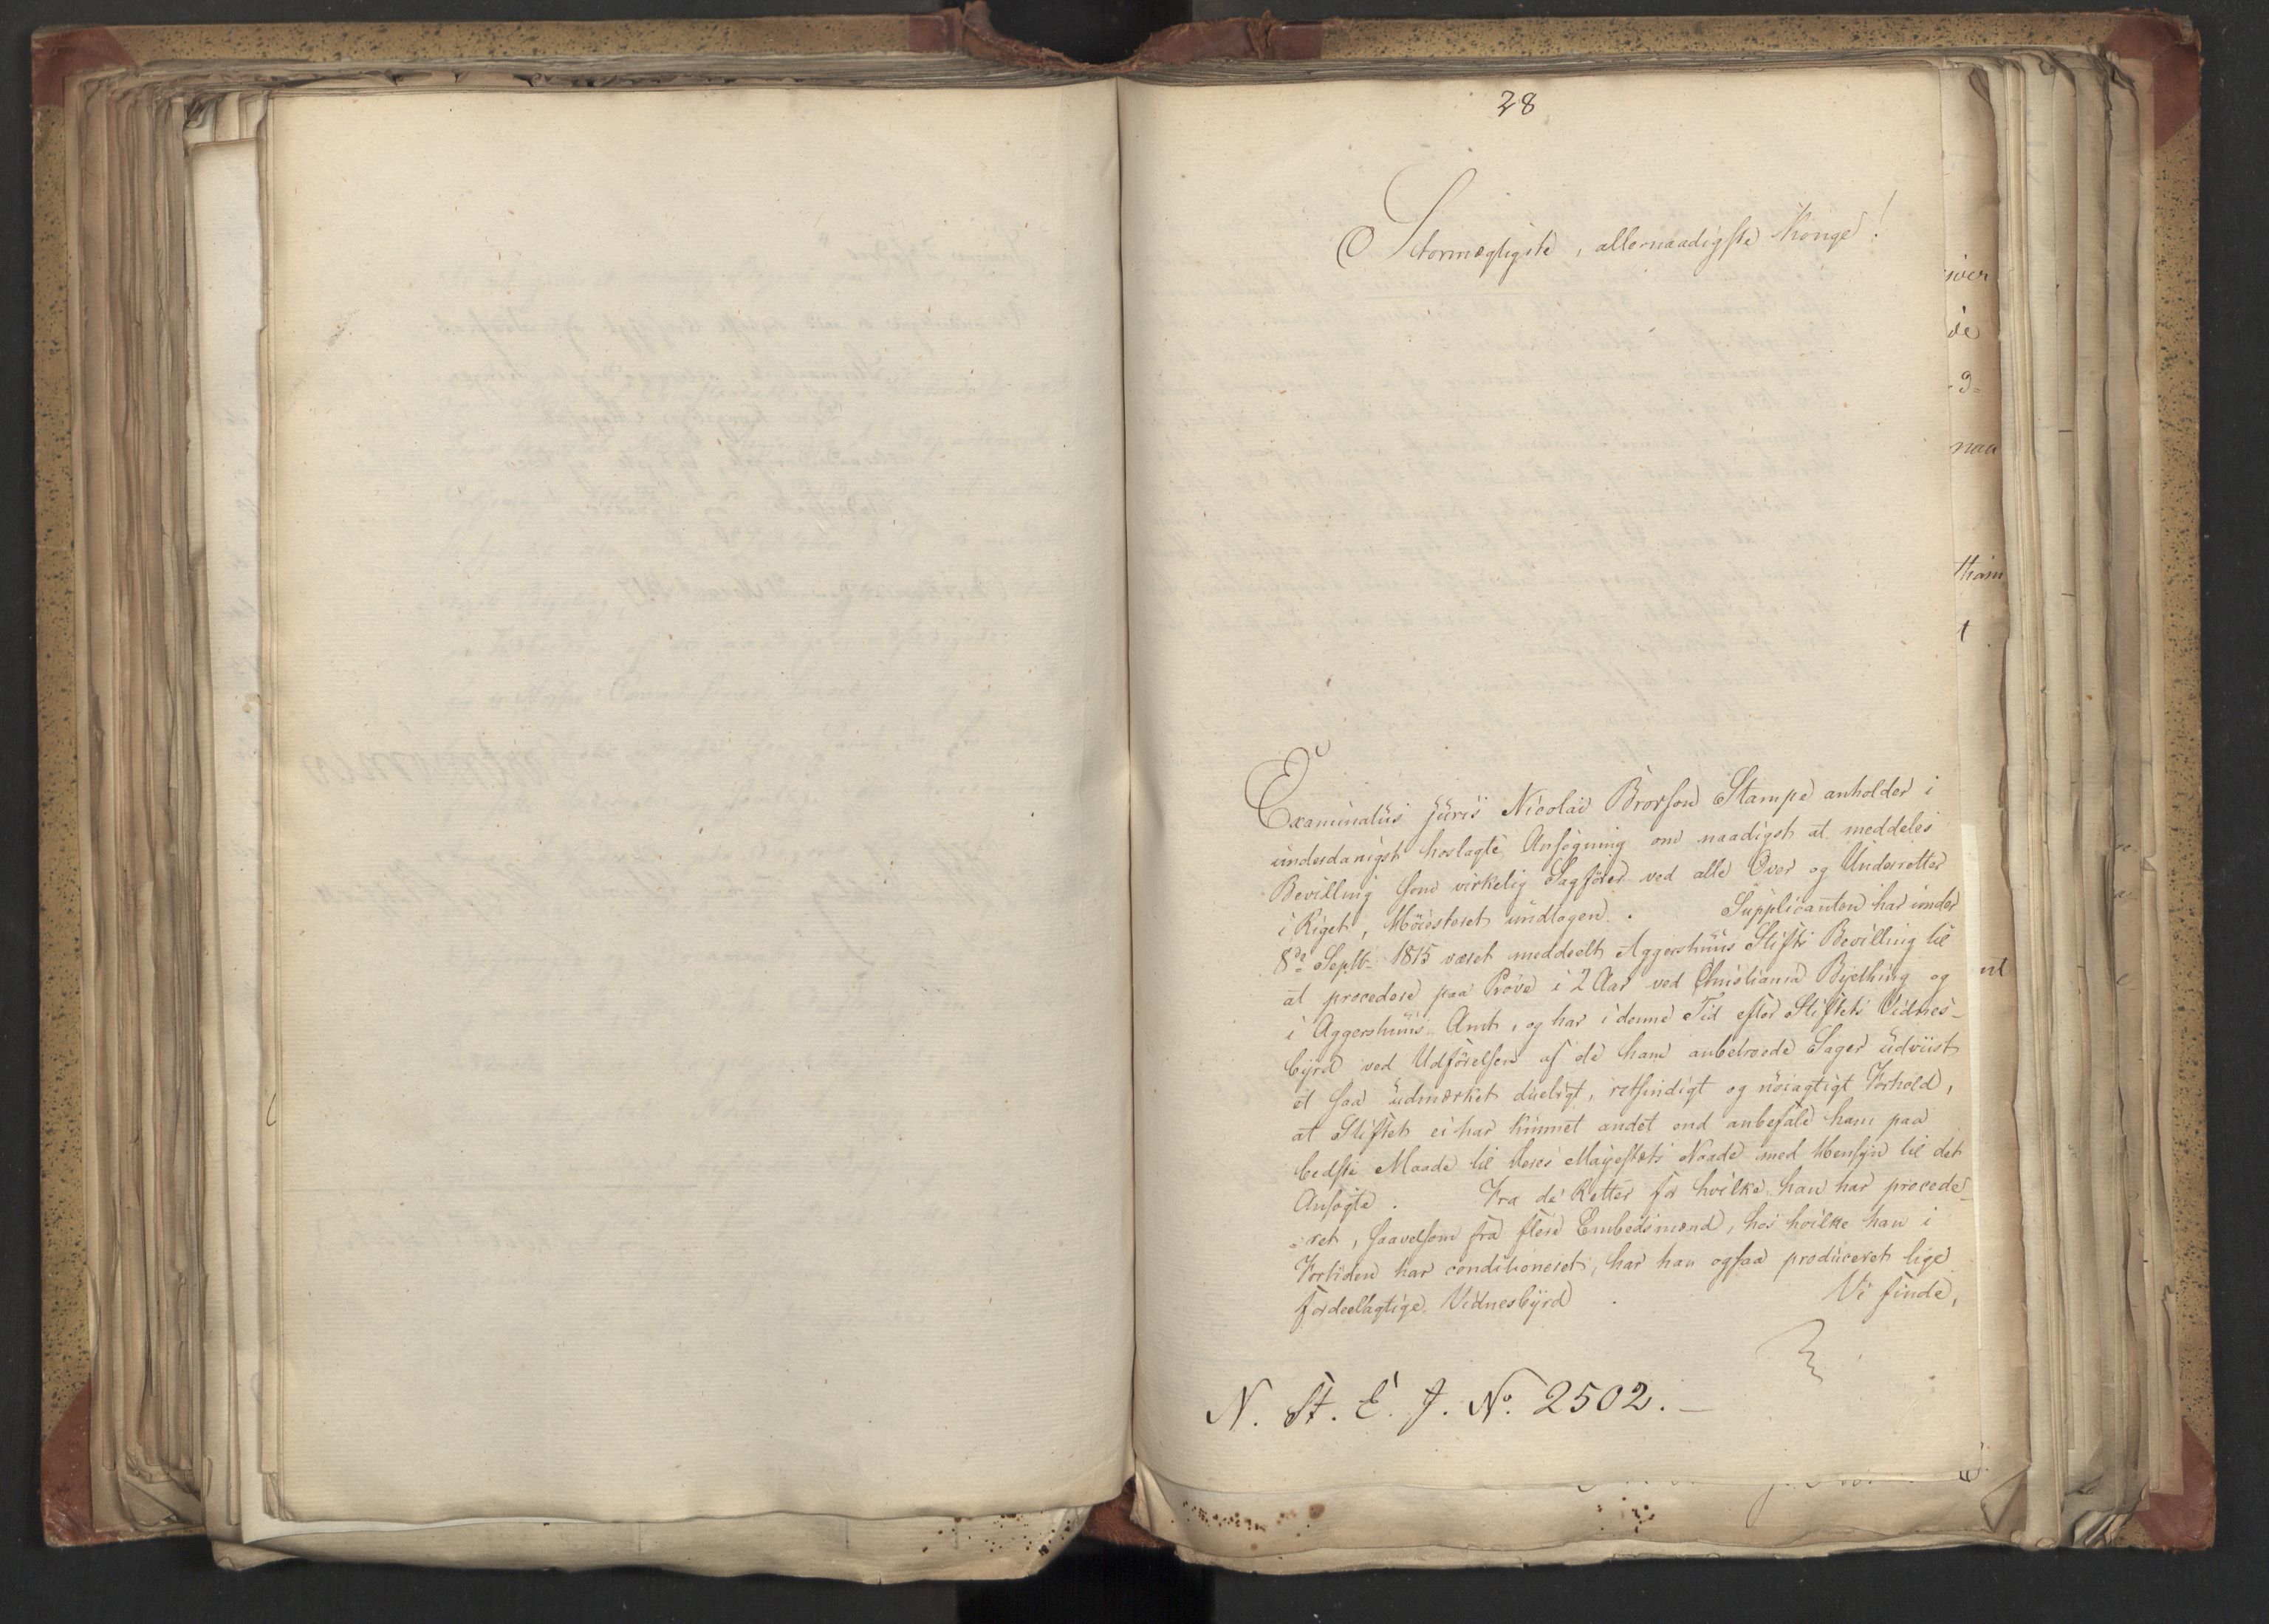 28
Stormægtigste, allernaadigste Konge!
Examinatus juris Nicolai Brorson Stampe anholder i
underdanigst hoslagte Ansøgning om naadigst at meddeles
Bevilling som virkelig Sagfører ved alle Over og Underretter
i Riget, Høiesteret undtagen. Supplicanten har under
8de Septb. 1815 været meddeelt Aggershuus Stifts Bevilling til
at procedere paa Prøve i 2 Aar ved Christiania Byething og
i Aggershuus Amt, og har i denne Tid efter Stiftets Vidnes-
byrd ved Udførelsen af de ham anbetroede Sager udviist
et saa udmærket dueligt, retsindigt og nøiagtigt Forhold,
at Stiftet ei har kunnet andet end anbefale ham paa
bedste Maade til Deres Majestæts Naade med Hensyn til det
Ansøgte. Fra de Retter for hvilke han har procede-
ret, saavelsom fra flere Embedsmænd, hos hvilke han i
Fortiden har conditioneret, har han ogsaa produceret lige
fordeelagtige Vidnesbyrd. Vi finde,
N. St. E. J. No. 2502.-